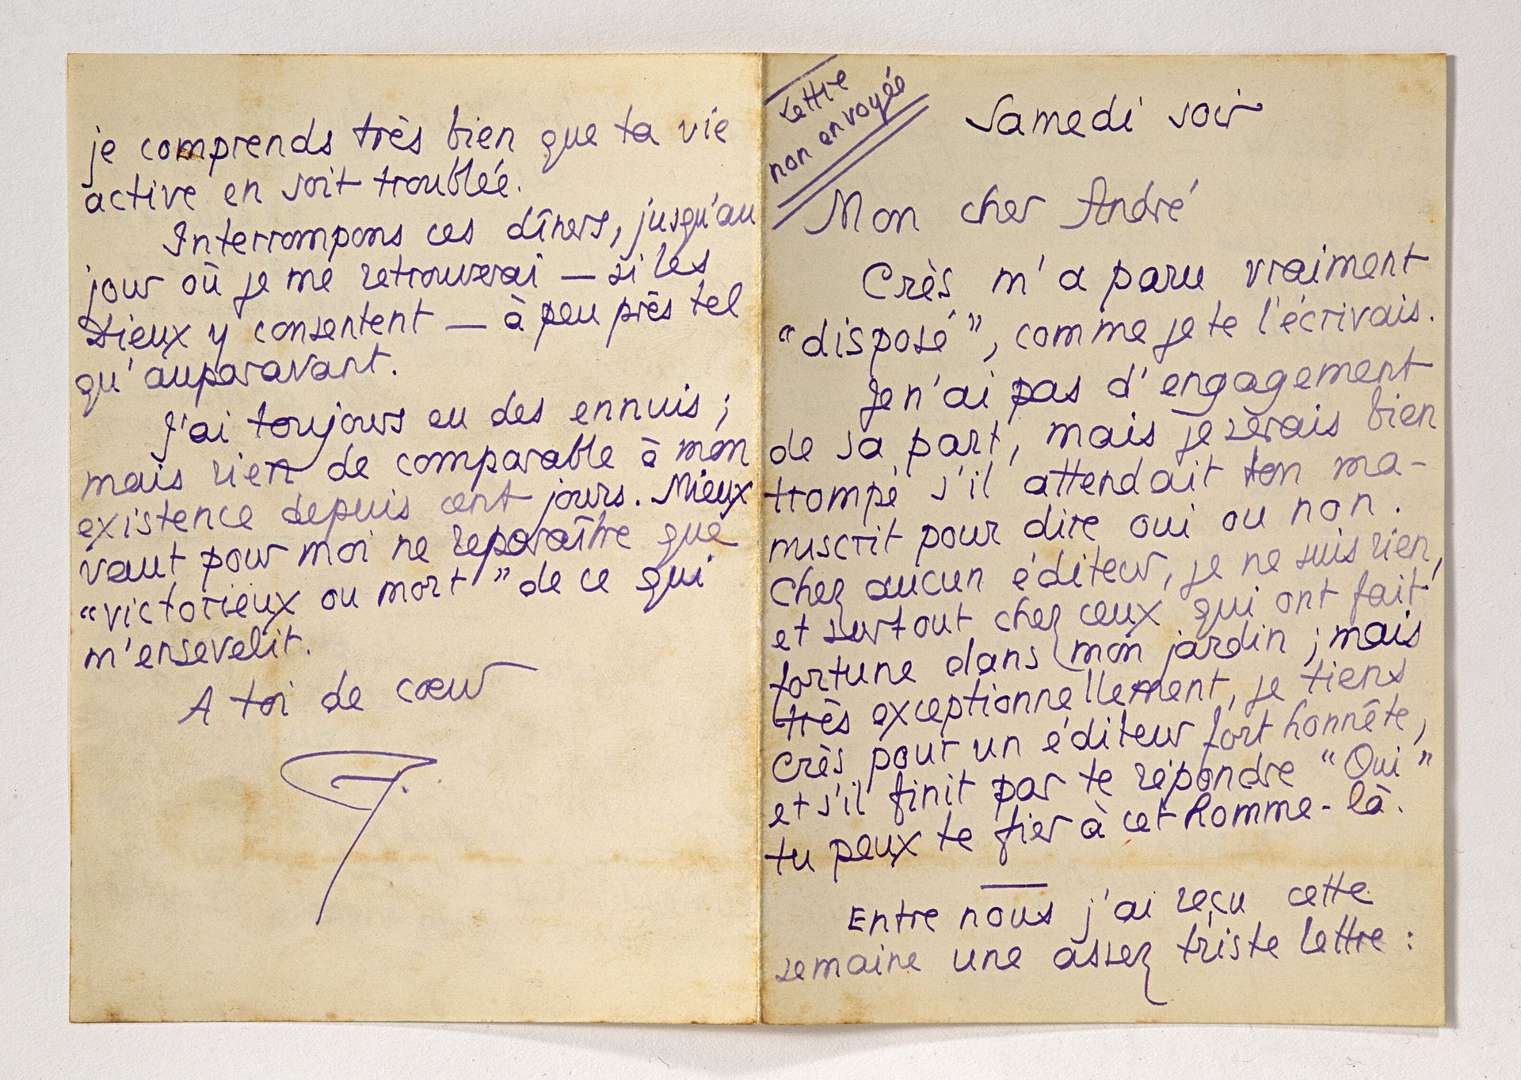 Lettre
non envoyée
Samedi soir
Mon cher André
Crès m'a paru vraiment
“disposé”, comme je te l'écrivais.
Je n'ai pas d'engagement
de sa part, mais je serais bien
trompé s'il attendait ton ma-
nuscrit pour dire oui ou non.
Chez aucun éditeur, je ne suis rien,
et surtout chez ceux qui ont fait
fortune dans mon jardin ; mais
très exceptionnellement, je tiens
Crès pour un éditeur fort honnête,
et s'il finit par te répondre “Oui”
tu peux te fier à cet homme-là.
Entre nous j'ai reçu cette
semaine une assez triste lettre :
je comprends très bien que ta vie
active en soit troublée.
Interrompons ces dîners, jusqu'au
jour où je me retrouverai — si les
Dieux y consentent — à peu près tel
qu'auparavant.
J'ai toujours eu des ennuis ;
mais rien de comparable à mon
existence depuis cent jours. Mieux
vaut pour moi ne reparaître que
“victorieux ou mort” de ce qui
m'ensevelit.
A toi de cœur
P.